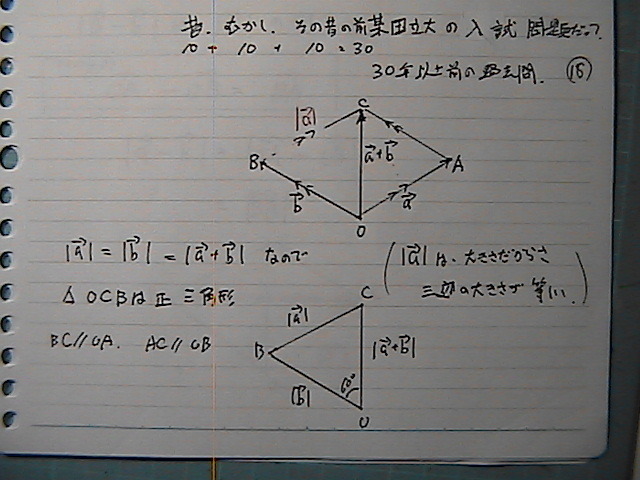 昔、むかし、その昔の前某国立大の入試問題だって。
10 + 10 + 10 = 30
30年以上前の過去問. ⑱
C
|a⃗|
B
a⃗+b⃗
A
b⃗
a⃗
O
|a⃗| = |b⃗| = |a⃗+b⃗| なので
(|a⃗|は、大きさだからさ
三辺の大きさが等しい.)
△OCBは正三角形
C
|a⃗|
BC//OA. AC//OB
B
|a⃗+b⃗|
|b⃗|
60°
O